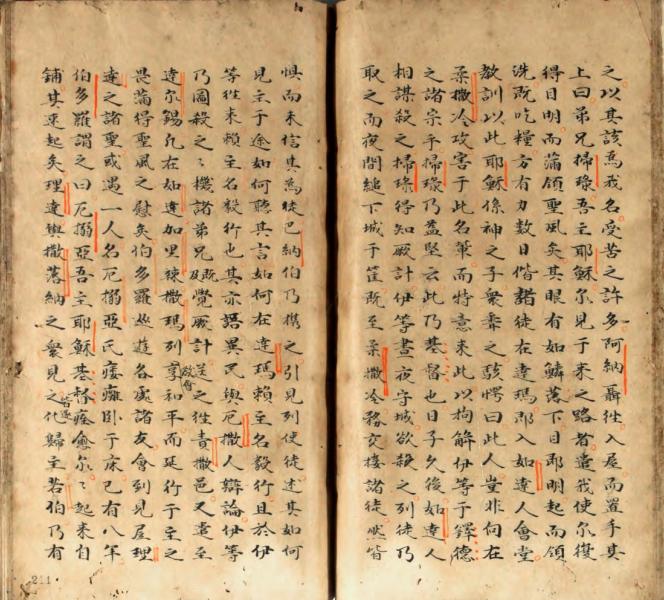 之以其該焉我名受苦之許多阿納聶徃入屋而置手其
上曰弟兄掃祿吾主耶穌尔見于来之路者遣我使尔復
得目明而蒲領聖風矣其眼有如鱗落下目即明起而領
洗既吃糧方有力數日偕諸徒在達瑪即入如達人會堂
教訓以此耶穌係神之子衆聽之駭愕曰此人豈非向在
柔撒冷攻害于此名輩而特意来此以拘解伊等于鐸德
之諸宗手掃祿乃益堅云此乃基督也日子久後如達人
相謀殺之掃祿得知厥計伊等晝夜守城欲殺之列徒乃
取之而夜間縋下城于筐既至柔撒冷務交接諸徒然皆
惧而未信其為徒巴納伯乃携之引見列使徒述其如何
見主于途如何聽其言如何在達瑪賴主名毅行且於伊
等徃来賴主名毅行也其亦語異民與厄撒人辯論伊等
乃圖殺之之機諸弟兄既覺厥計送之徃責撒邑又遣至
達尔錫凢在如達加里辣撒瑪列享和平而延行于主之
畏蒲得聖風之慰矣伯多羅廵遊各處諸友會到見居理
達之諸聖或遇一人名厄搦亞氏痿癱卧于床已有八年
伯多羅謂之曰厄搦亞吾主耶穌基督痊愈尔尔起来自
鋪其速起矣理達與撒落納之衆見之皆化歸主若伯乃有
211